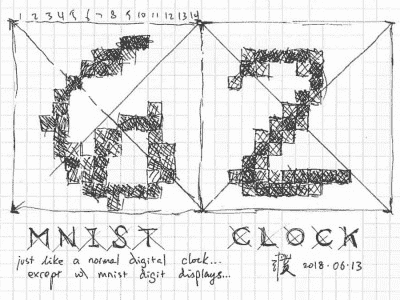 1 2 3 4 5 6 7 8 9 10 11 12 13 14
6 2
MNIST CLOCK
just like a normal digital clock...
except w/ mnist digit displays...
2018.06.13